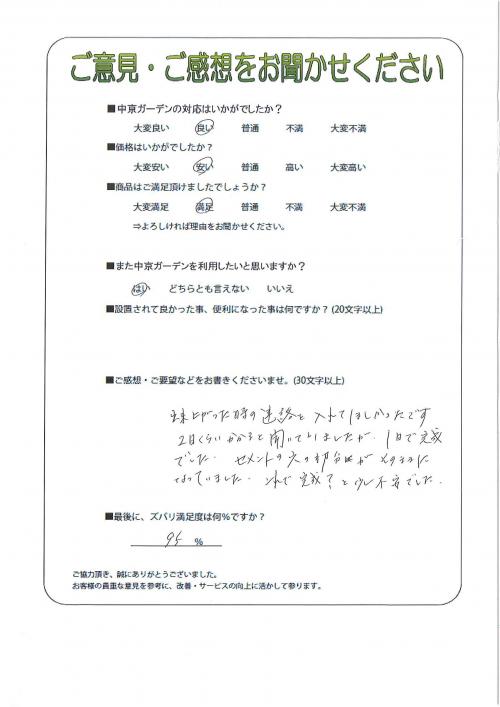 ご意見・ご感想をお聞かせください
■中京ガーデンの対応はいかがでしたか？
大変良い 良い 普通 不満 大変不満
■価格はいかがでしたか？
大変安い 安い 普通 高い 大変高い
■商品はご満足頂けましたでしょうか？
大変満足 満足 普通 不満 大変不満
⇒よろしければ理由をお聞かせください。
■また中京ガーデンを利用したいと思いますか？
はい どちらとも言えない いいえ
■設置されて良かった事、便利になった事は何ですか？(20文字以上)
■ご感想・ご要望などをお書きくださいませ。(30文字以上)
出来上がった時の連絡を入れてほしかったです
2日くらいかかると聞いていましたが、1日で完成
でした。セメントの穴の部分がそのままに
なっていました。これで完成？と少し不安でした。
■最後に、ズバリ満足度は何％ですか？
95 %
ご協力頂き、誠にありがとうございました。
お客様の貴重な意見を参考に、改善・サービスの向上に活かして参ります。